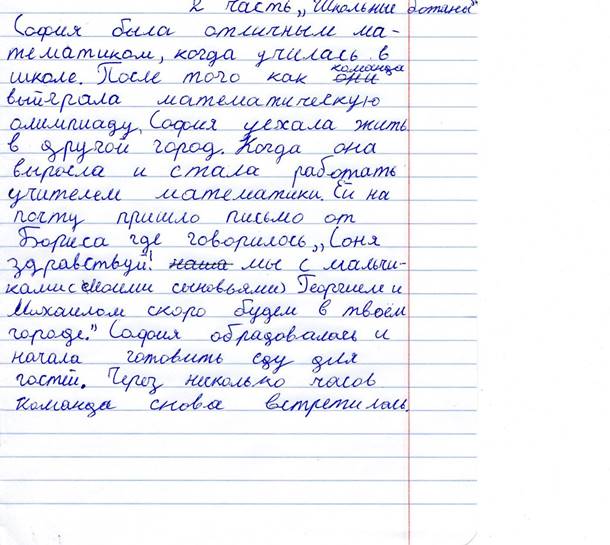 2 часть „Школьные ботаны"
София была отличным ма-
тематиком, когда училась в
школе. После того как команда
выйграла математическую
олимпиаду, София уехала жить
в другой город. Когда она
выросла и стала работать
учителем математики. Ей на
почту пришло письмо от
Бориса где говорилось „Соня
здравствуй! наша мы с мальчи-
ками (моими сыновьями) Георгием и
Михаилом скоро будем в твоём
городе." София обрадовалась и
начала готовить еду для
гостей. Через несколько часов
команда снова встретилась.